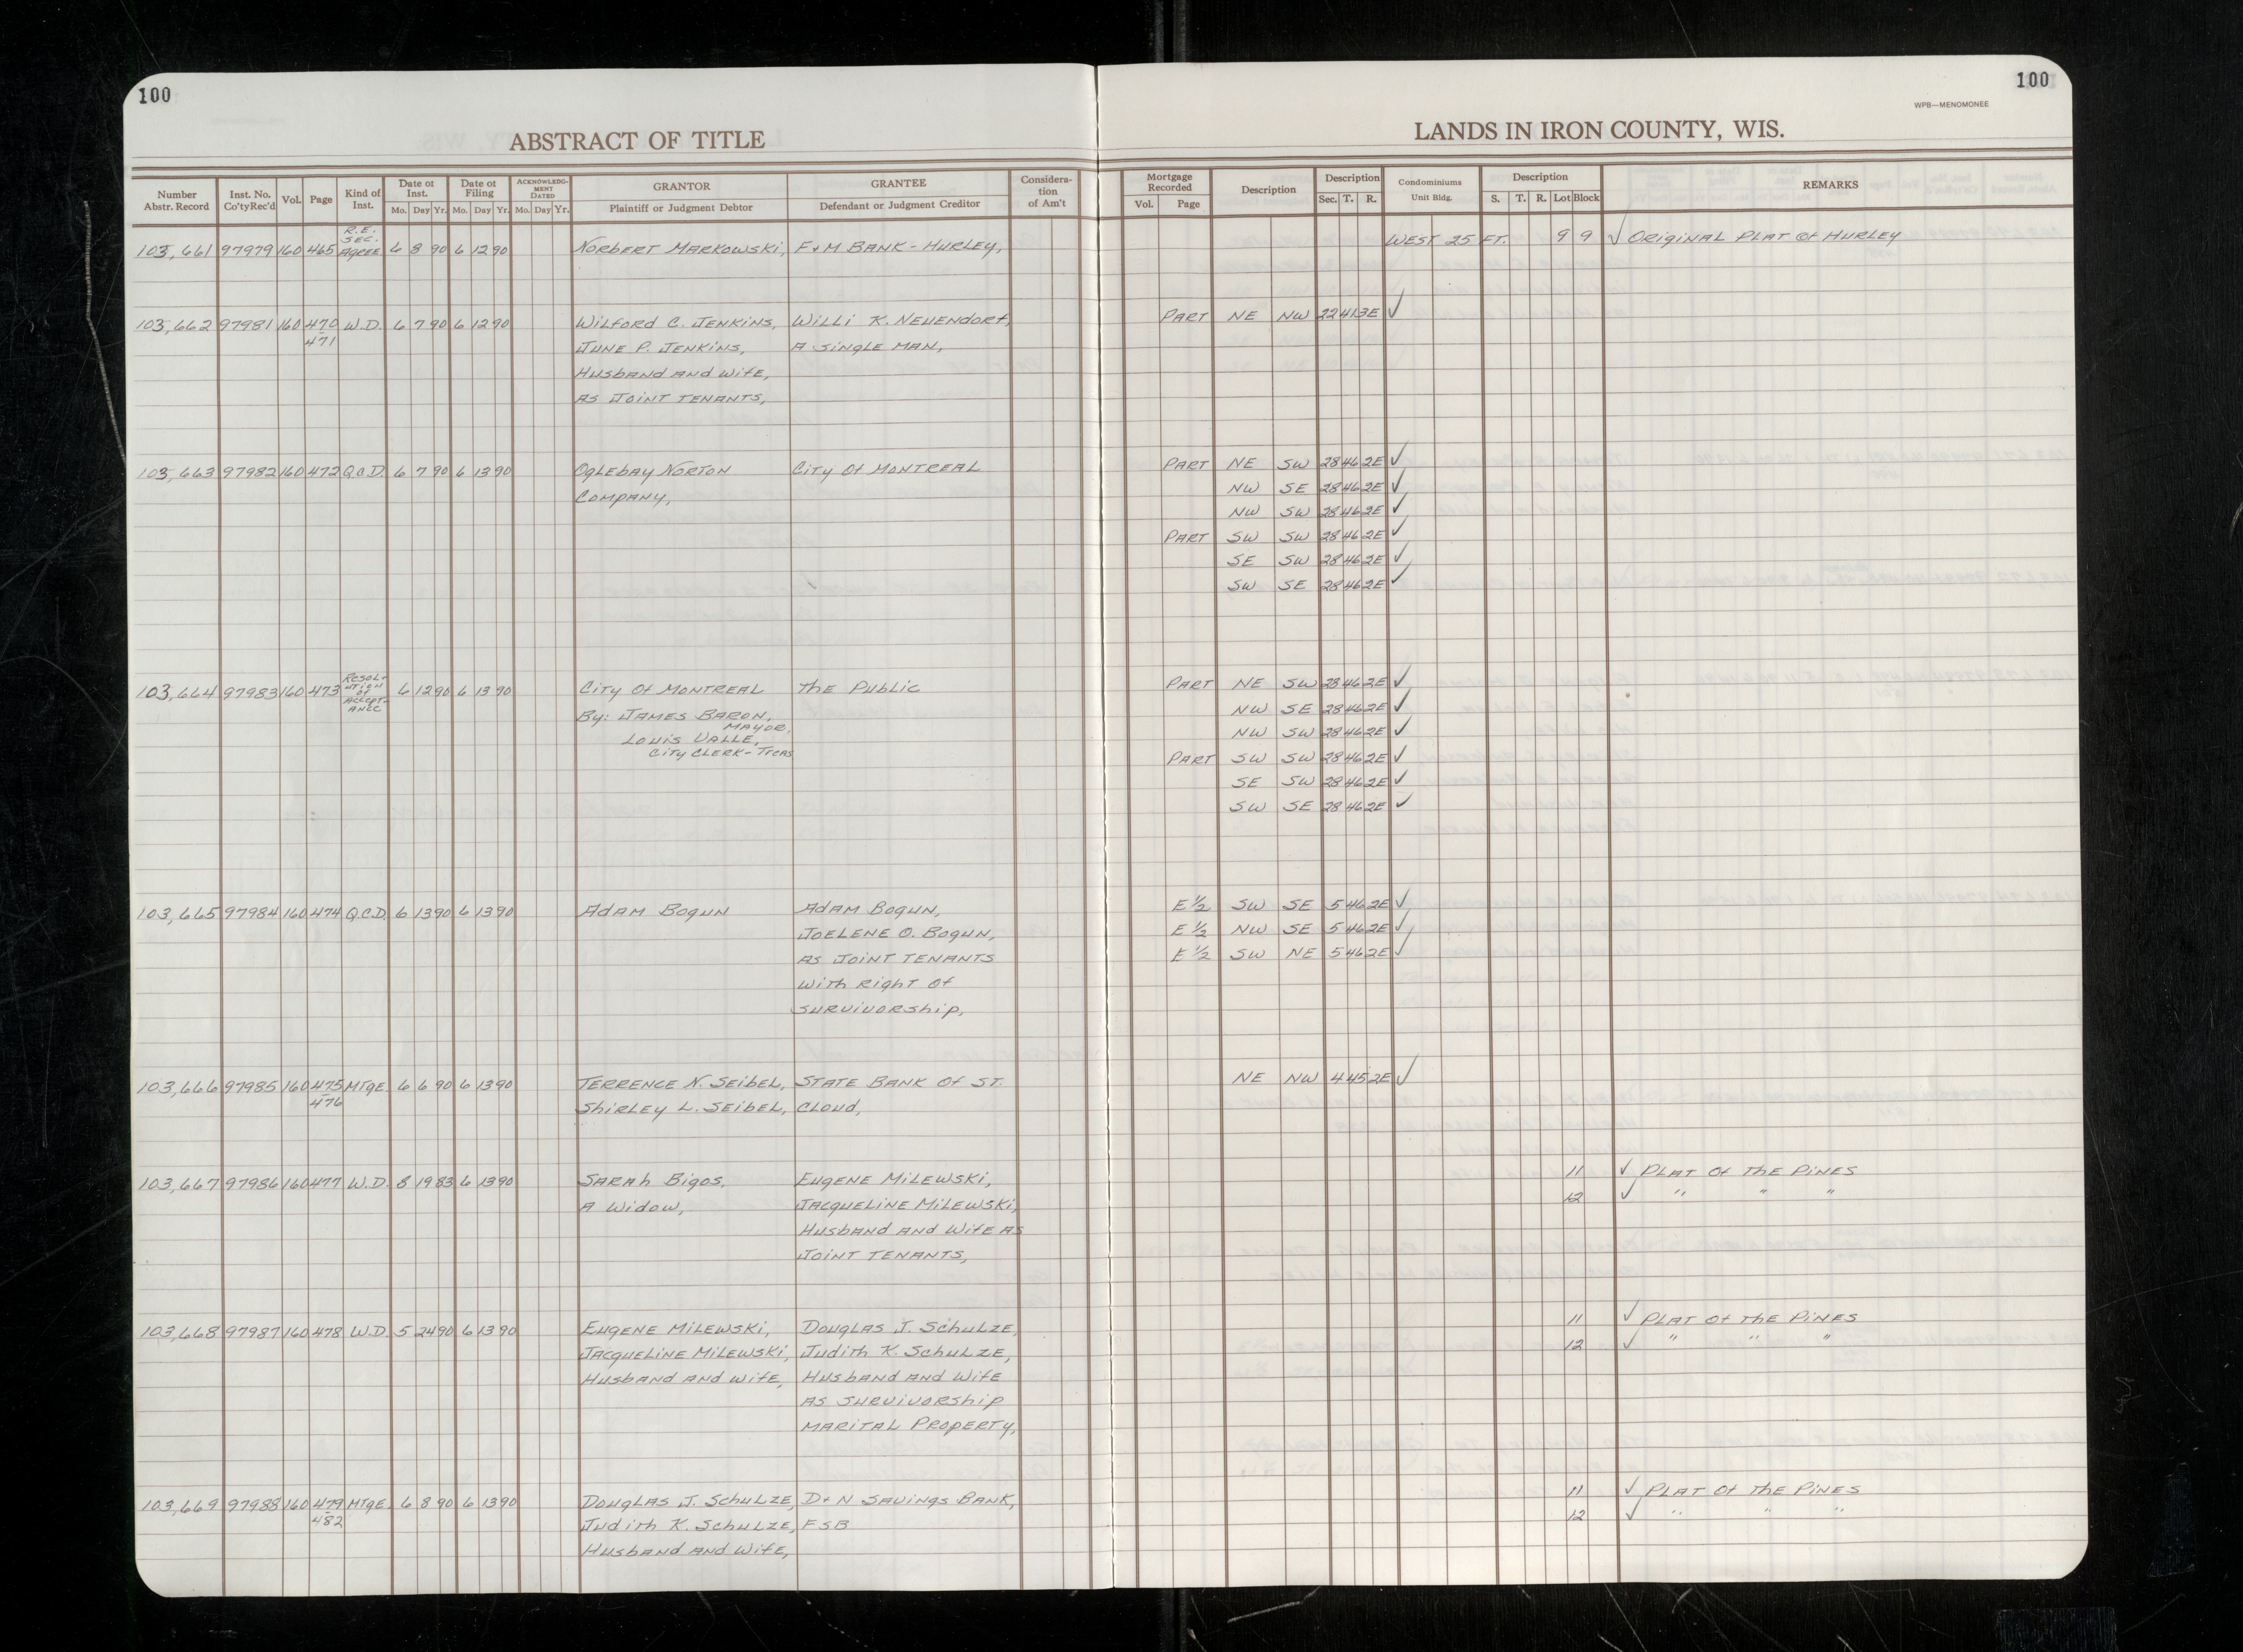 100
100
WPB—MENOMONEE
ABSTRACT OF TITLE
LANDS IN IRON COUNTY, WIS.
Number Abstr. Record | Inst. No. Co'ty Rec'd | Vol. | Page | Kind of Inst. | Date of Inst. Mo. Day Yr. | Date of Filing Mo. Day Yr. | ACKNOWLEDGMENT DATED Mo. Day Yr. | GRANTOR Plaintiff or Judgment Debtor | GRANTEE Defendant or Judgment Creditor | Consideration of Am't | Mortgage Recorded Vol. Page | Description | Description Sec. T. R. | Condominiums Unit Bldg. | Description S. T. R. Lot Block | REMARKS
103,661 97979 160 465 R.E. SEC. AGREE. 6 8 90 6 12 90 NORBERT MARKOWSKI, F+M BANK - HURLEY, WEST 25 FT. 9 9 ✓ ORIGINAL PLAT Of HURLEY
103,662 97981 160 470 W.D. 6 7 90 6 12 90 WILFORD C. JENKINS, WILLI K. NEUENDORF, PART NE NW 22 41 3E ✓
471 JUNE P. JENKINS, A SINGLE MAN,
HUSBAND AND WIFE,
AS JOINT TENANTS,
103,663 97982 160 472 Q.C.D. 6 7 90 6 13 90 OGLEBAY NORTON CITY Of MONTREAL PART NE SW 28 46 2E ✓
COMPANY, NW SE 28 46 2E ✓
NW SW 28 46 2E ✓
PART SW SW 28 46 2E ✓
SE SW 28 46 2E ✓
SW SE 28 46 2E ✓
103,664 97983 160 473 RESOLUTION OF ACCEPTANCE 6 12 90 6 13 90 CITY Of MONTREAL THE PUBLIC PART NE SW 28 46 2E ✓
BY: JAMES BARON, NW SE 28 46 2E ✓
MAYOR,
LOUIS VALLE, NW SW 28 46 2E ✓
CITY CLERK-TREAS PART SW SW 28 46 2E ✓
SE SW 28 46 2E ✓
SW SE 28 46 2E ✓
103,665 97984 160 474 Q.C.D. 6 13 90 6 13 90 ADAM BOGUN ADAM BOGUN, E½ SW SE 5 46 2E ✓
JOELENE O. BOGUN, E½ NW SE 5 46 2E ✓
AS JOINT TENANTS E½ SW NE 5 46 2E ✓
WITH RIGHT Of
SURVIVORSHIP,
103,666 97985 160 475 MTGE. 6 6 90 6 13 90 TERRENCE N. SEIBEL, STATE BANK Of ST. NE NW 4 45 2E ✓
476 SHIRLEY L. SEIBEL, CLOUD,
103,667 97986 160 477 W.D. 8 19 83 6 13 90 SARAH BIGOS, EUGENE MILEWSKI, 11 ✓ PLAT Of THE PINES
A WIDOW, JACQUELINE MILEWSKI, 12 ✓ " " "
HUSBAND AND WIFE AS
JOINT TENANTS,
103,668 97987 160 478 W.D. 5 24 90 6 13 90 EUGENE MILEWSKI, DOUGLAS J. SCHULZE, 11 ✓ PLAT Of THE PINES
JACQUELINE MILEWSKI, JUDITH K. SCHULZE, 12 ✓ " " "
HUSBAND AND WIFE, HUSBAND AND WIFE
AS SURVIVORSHIP
MARITAL PROPERTY,
103,669 97988 160 479 MTGE. 6 8 90 6 13 90 DOUGLAS J. SCHULZE, D+N SAVINGS BANK, 11 ✓ PLAT Of THE PINES
482 JUDITH K. SCHULZE, FSB 12 ✓ " " "
HUSBAND AND WIFE,